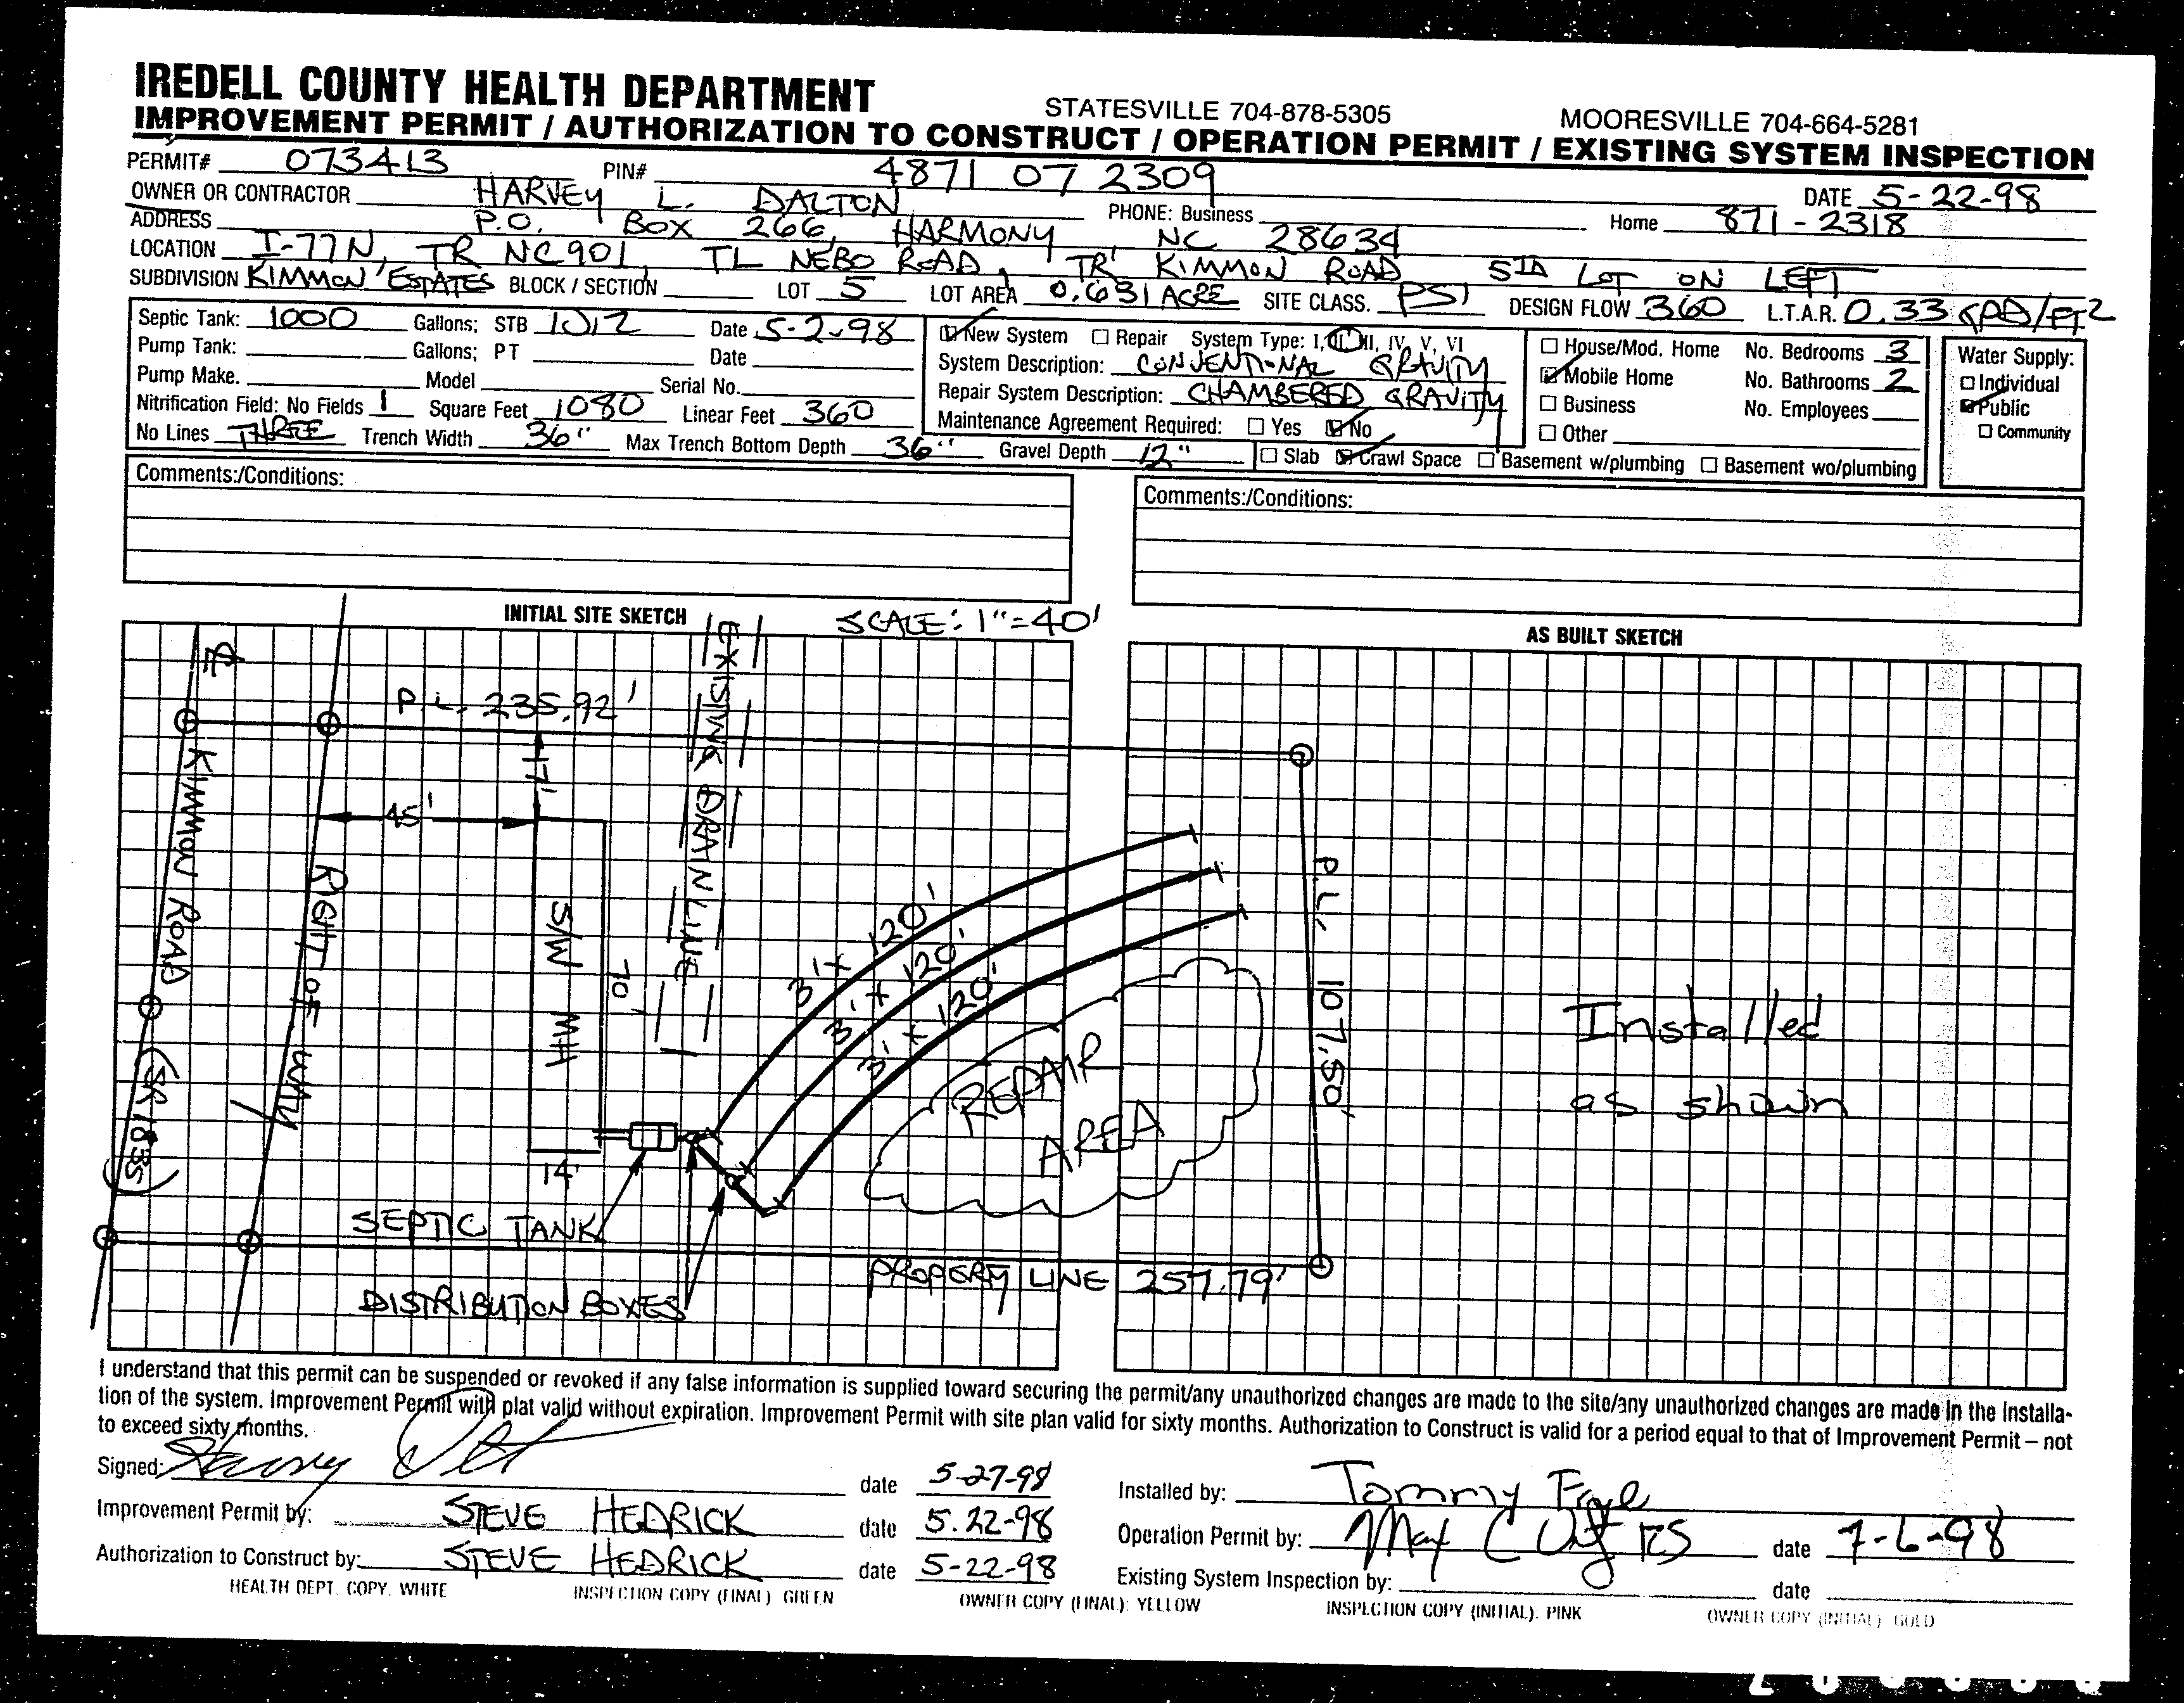 IREDELL COUNTY HEALTH DEPARTMENT
STATESVILLE 704-878-5305 MOORESVILLE 704-664-5281
IMPROVEMENT PERMIT / AUTHORIZATION TO CONSTRUCT / OPERATION PERMIT / EXISTING SYSTEM INSPECTION
PERMIT# 073413 PIN# 4871 07 2309 DATE 5-22-98
OWNER OR CONTRACTOR HARVEY L. DALTON PHONE: Business Home 871-2318
ADDRESS P.O. BOX 266, HARMONY, NC 28634
LOCATION I-77N, TR NC901, TL NEBO ROAD, TR KIMMON ROAD 5TH LOT ON LEFT
SUBDIVISION KIMMON ESTATES BLOCK / SECTION LOT 5 LOT AREA 0.631 ACRE SITE CLASS. PS1 DESIGN FLOW 360 L.T.A.R. 0.33 GPD/FT2
Septic Tank: 1000 Gallons; STB 1012 Date 5-2-98
Pump Tank: Gallons; PT Date
Pump Make. Model Serial No.
Nitrification Field: No Fields 1 Square Feet 1080 Linear Feet 360
No Lines THREE Trench Width 36" Max Trench Bottom Depth 36" Gravel Depth 12"
New System Repair System Type: I, II, III, IV, V, VI
System Description: CONVENTIONAL GRAVITY
Repair System Description: CHAMBERED GRAVITY
Maintenance Agreement Required: Yes No
Slab Crawl Space Basement w/plumbing Basement wo/plumbing
House/Mod. Home No. Bedrooms 3
Mobile Home No. Bathrooms 2
Business No. Employees
Other
Water Supply:
Individual
Public
Community
Comments:/Conditions:
Comments:/Conditions:
INITIAL SITE SKETCH SCALE: 1"=40'
AS BUILT SKETCH
P.L. 235.92'
EXISTING DRAIN LINE
17'
45'
KIMMON ROAD (SR 1835)
RIGHT OF WAY
S/W MH
70'
14'
3' x 120'
3' x 120'
3' x 120'
REPAIR
AREA
P.L. 107.50'
Installed
as shown
SEPTIC TANK
DISTRIBUTION BOXES
PROPERTY LINE 257.79'
I understand that this permit can be suspended or revoked if any false information is supplied toward securing the permit/any unauthorized changes are made to the site/any unauthorized changes are made in the installa-
tion of the system. Improvement Permit with plat valid without expiration. Improvement Permit with site plan valid for sixty months. Authorization to Construct is valid for a period equal to that of Improvement Permit – not
to exceed sixty months.
Signed: Harvey date 5-27-98
Improvement Permit by: STEVE HEDRICK date 5.22-98
Authorization to Construct by: STEVE HEDRICK date 5-22-98
Installed by: Tommy
Operation Permit by: date 7-6-98
Existing System Inspection by: date
HEALTH DEPT. COPY. WHITE INSPECTION COPY (FINAL) GREEN OWNER COPY (FINAL): YELLOW INSPECTION COPY (INITIAL): PINK OWNER COPY (INITIAL) GOLD